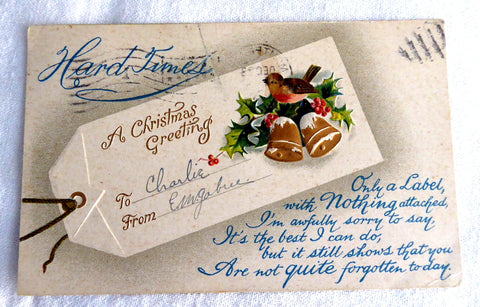 Hard Times
A Christmas
Greeting
To Charlie
From
Only a Label,
with Nothing attached,
I'm awfully sorry to say.
It's the best I can do,
but it still shows that you
Are not quite forgotten to-day.